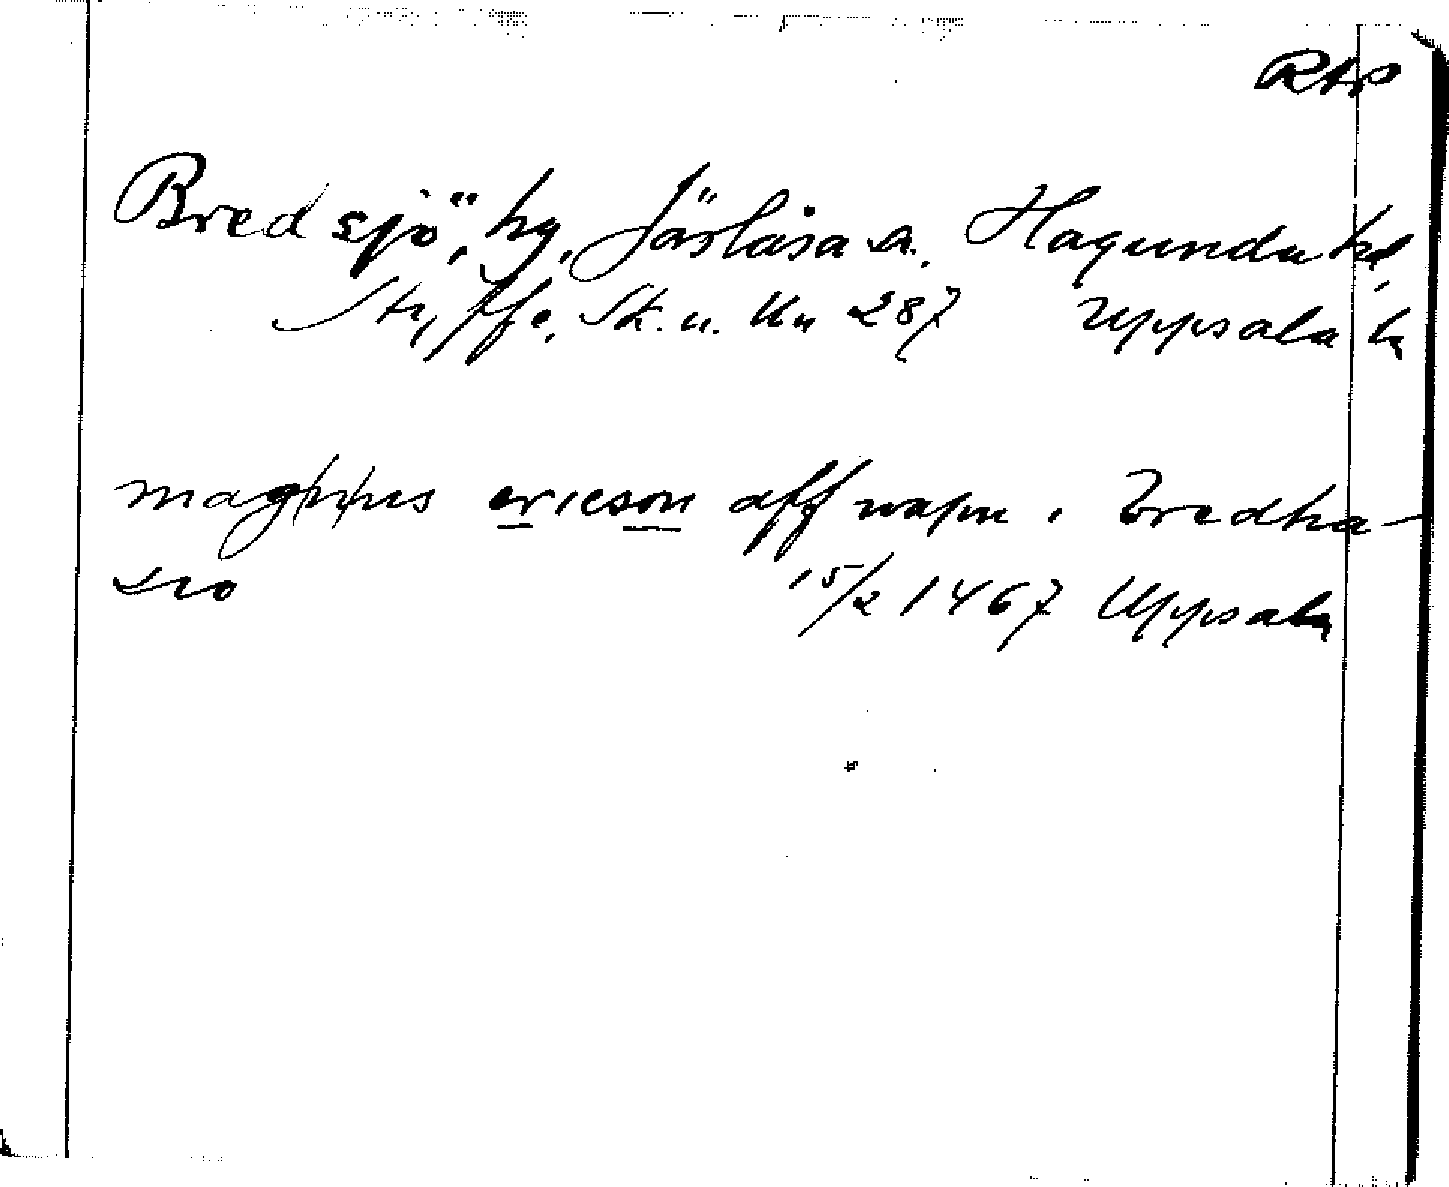 RAp
Bredsjö, by, Järlåsa sn. Hagunda hd,
Styffe, Sk. u. Un 287 Uppsala l.
magnus ericson aff wapn i Bredha-
sio 15/2 1467 Uppsala